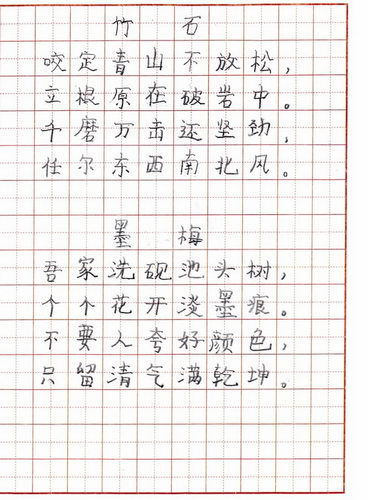 竹石
咬定青山不放松，
立根原在破岩中。
千磨万击还坚劲，
任尔东西南北风。
墨梅
吾家洗砚池头树，
个个花开淡墨痕。
不要人夸好颜色，
只留清气满乾坤。